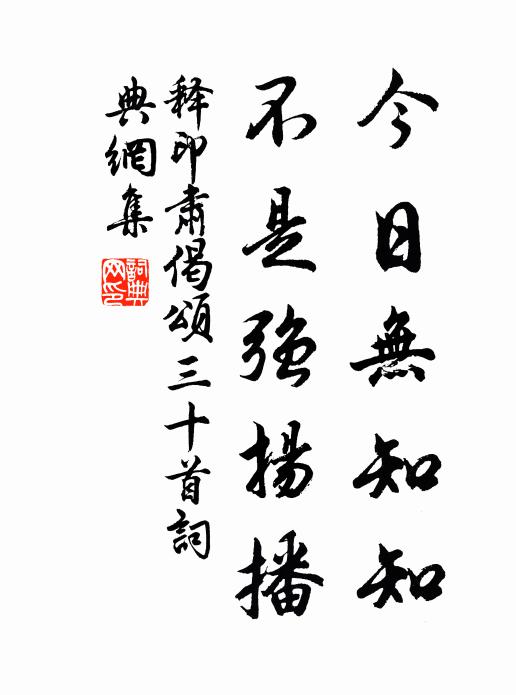 今日無知知
不是強揚播
释印肅偈頌三十首詞
典網集
詞典
网印